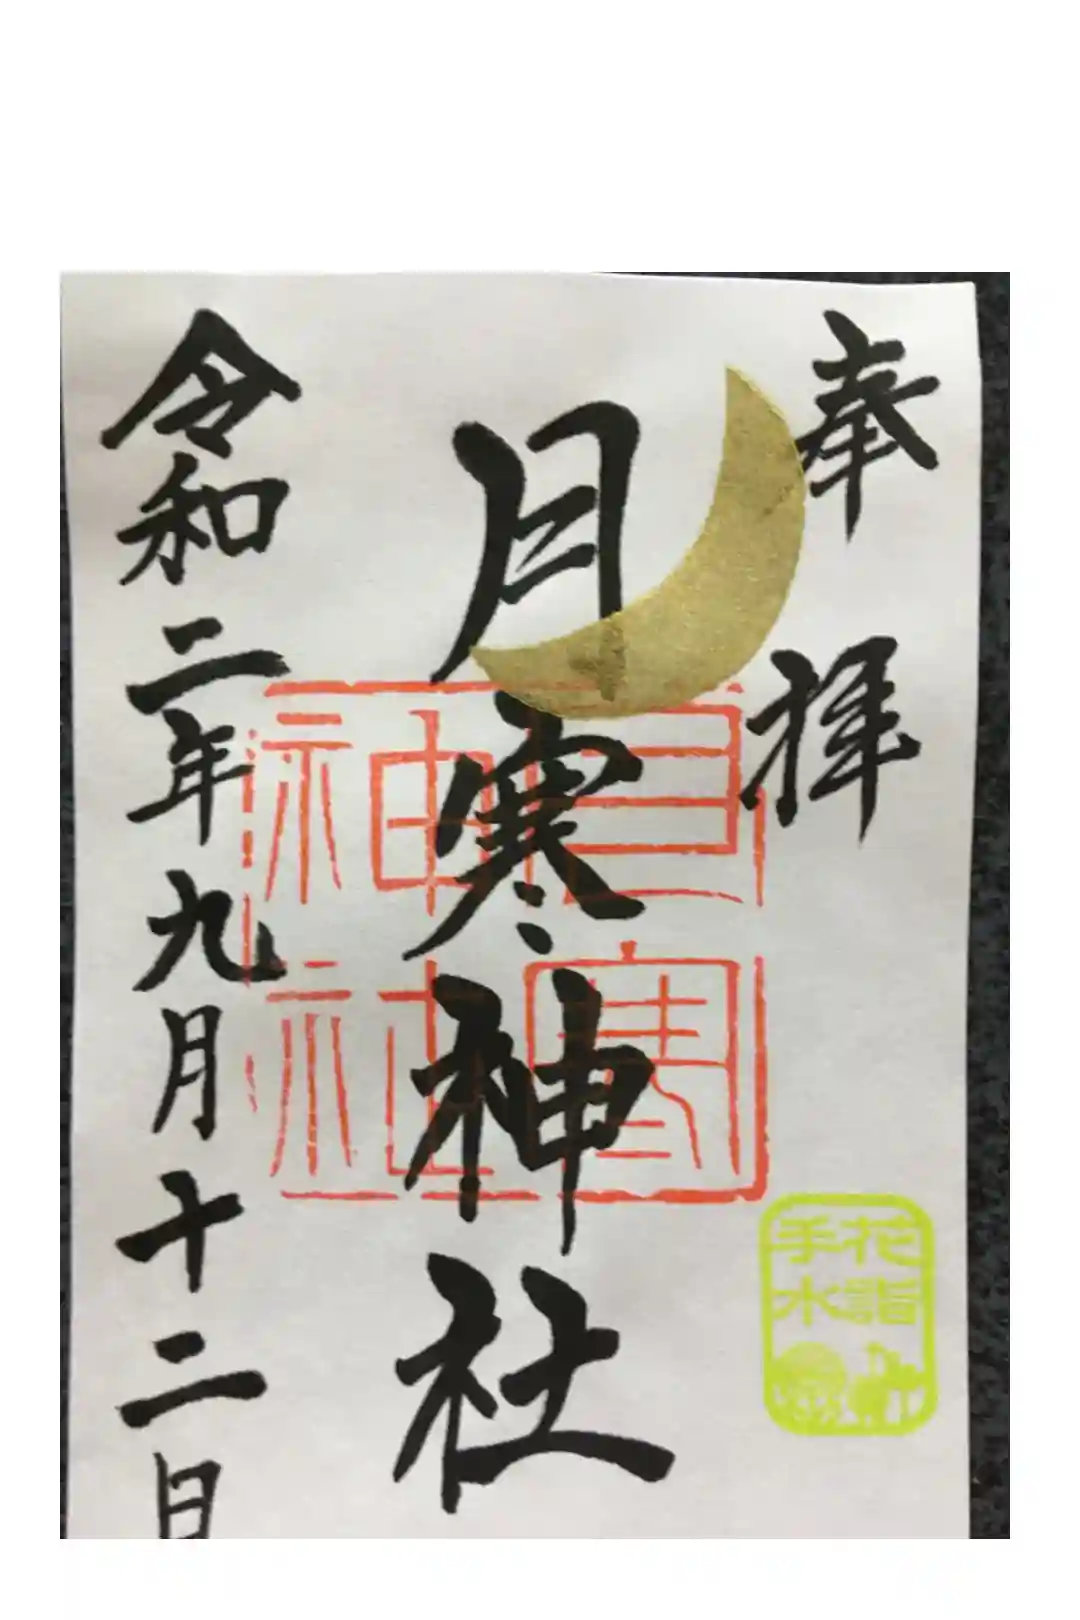 奉拝
月寒神社
月寒神社
令和二年九月十二日
花詣
手水